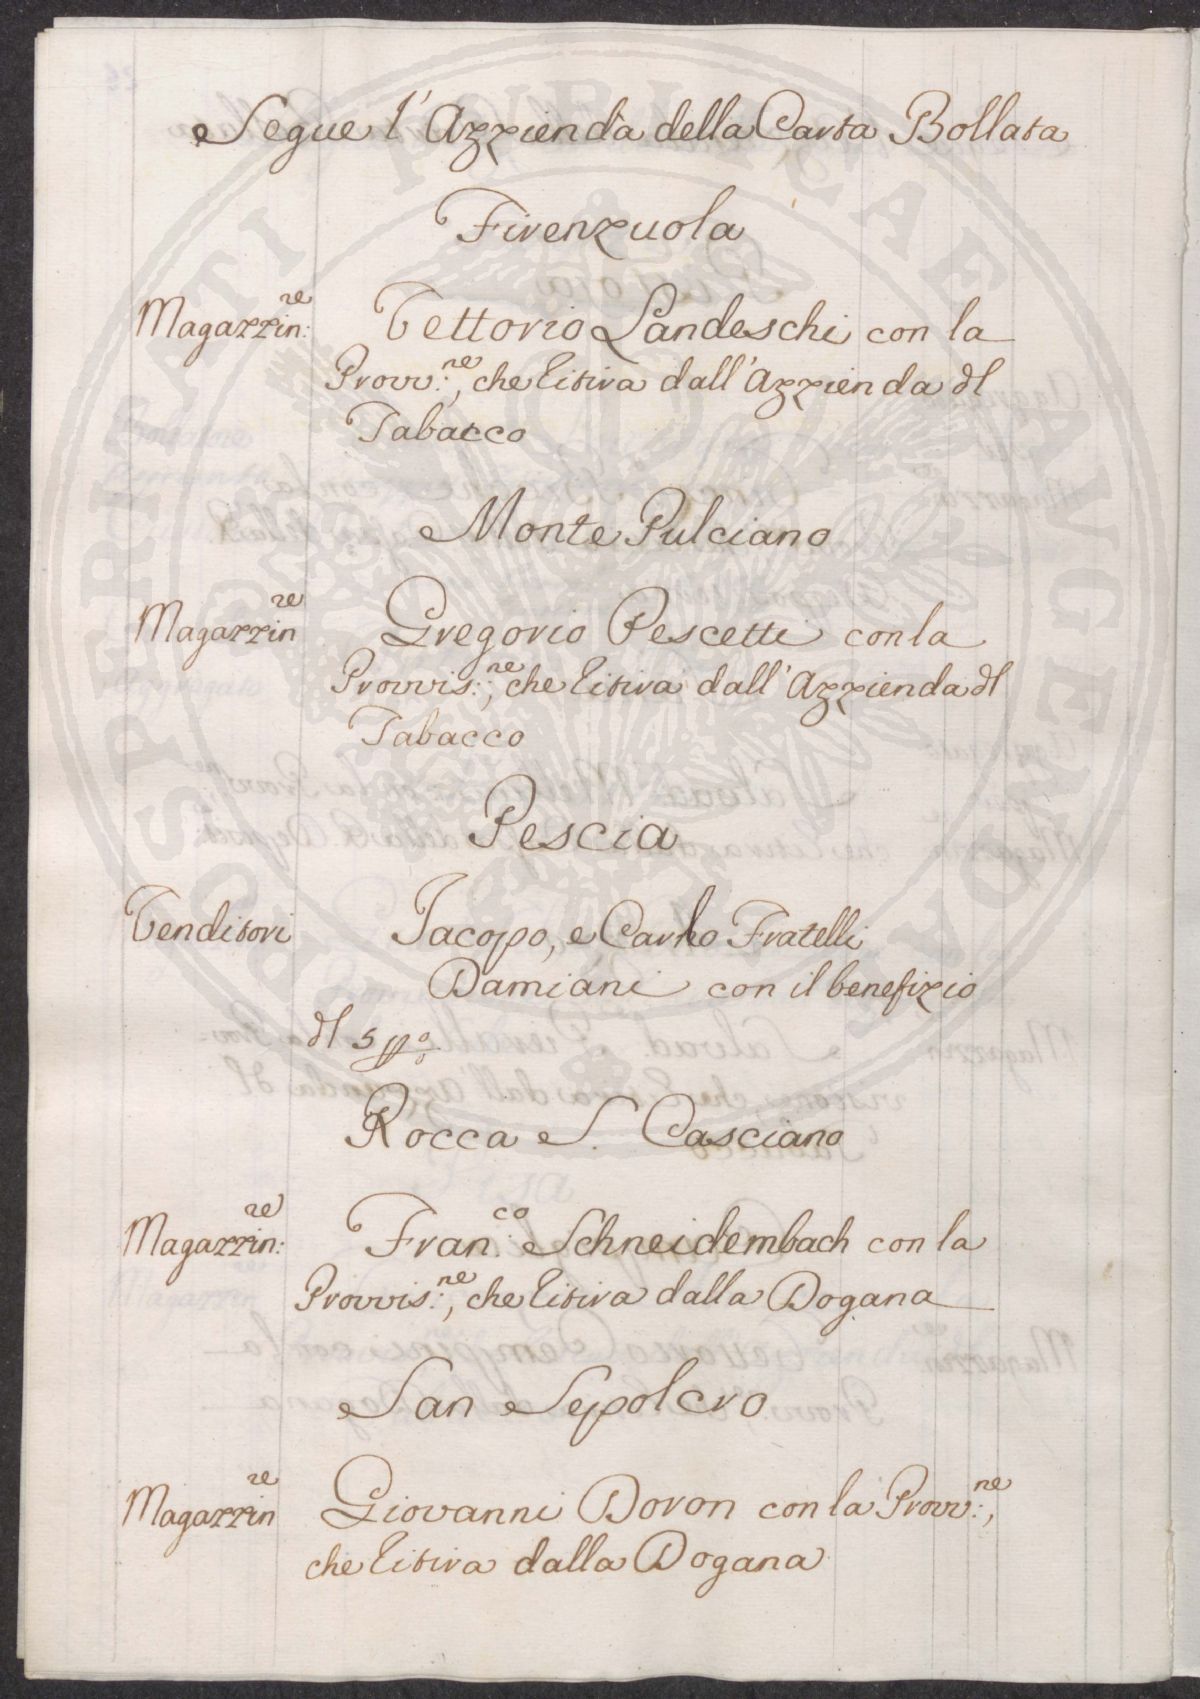 Segue l'Azzienda della Carta Bollata
Firenzuola
Magazzin:re Vettorio Landeschi con la
Provv:ne, che litira dall'Azzienda dl
Tabacco
Monte Pulciano
Magazzinre Gregorio Pescetti con la
Provvis:ne, che litira dall'Azzienda dl
Tabacco
Pescia
Venditori Jacopo, e Carlo Fratelli
Damiani con il benefizio
dl 5 p%
Rocca S. Casciano
Magazzin:re Fran:co Schneidembach con la
Provvis:ne, che litira dalla Dogana
San Sepolcro
Magazzinre Giovanni Doron con la Provv:ne,
che litira dalla Dogana
PROSPERITATI PUBLICAE AUGENDAE